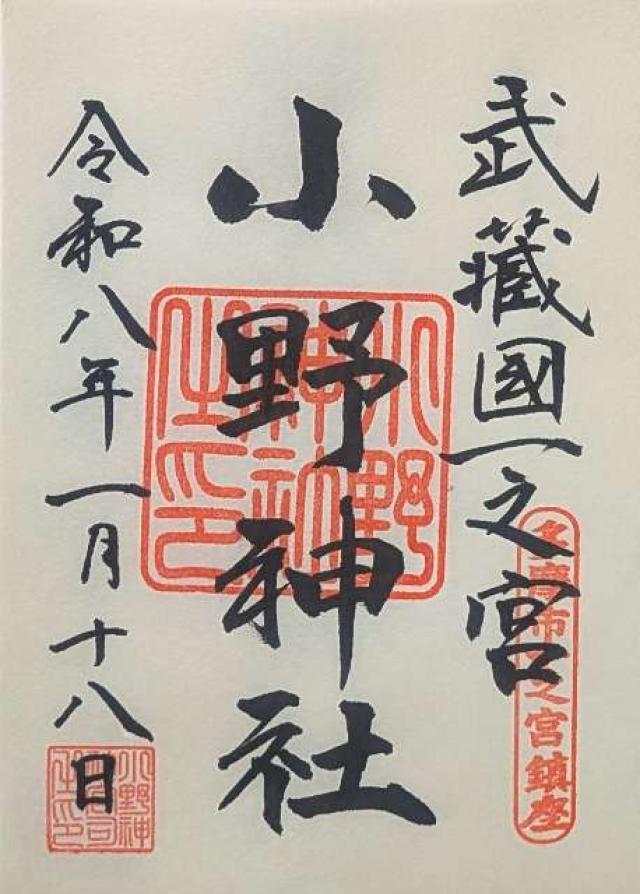 武藏國一之宮
多摩市一之宮鎮座
小野神社
小野神社之印
令和八年一月十八日
小野神社宮司之印